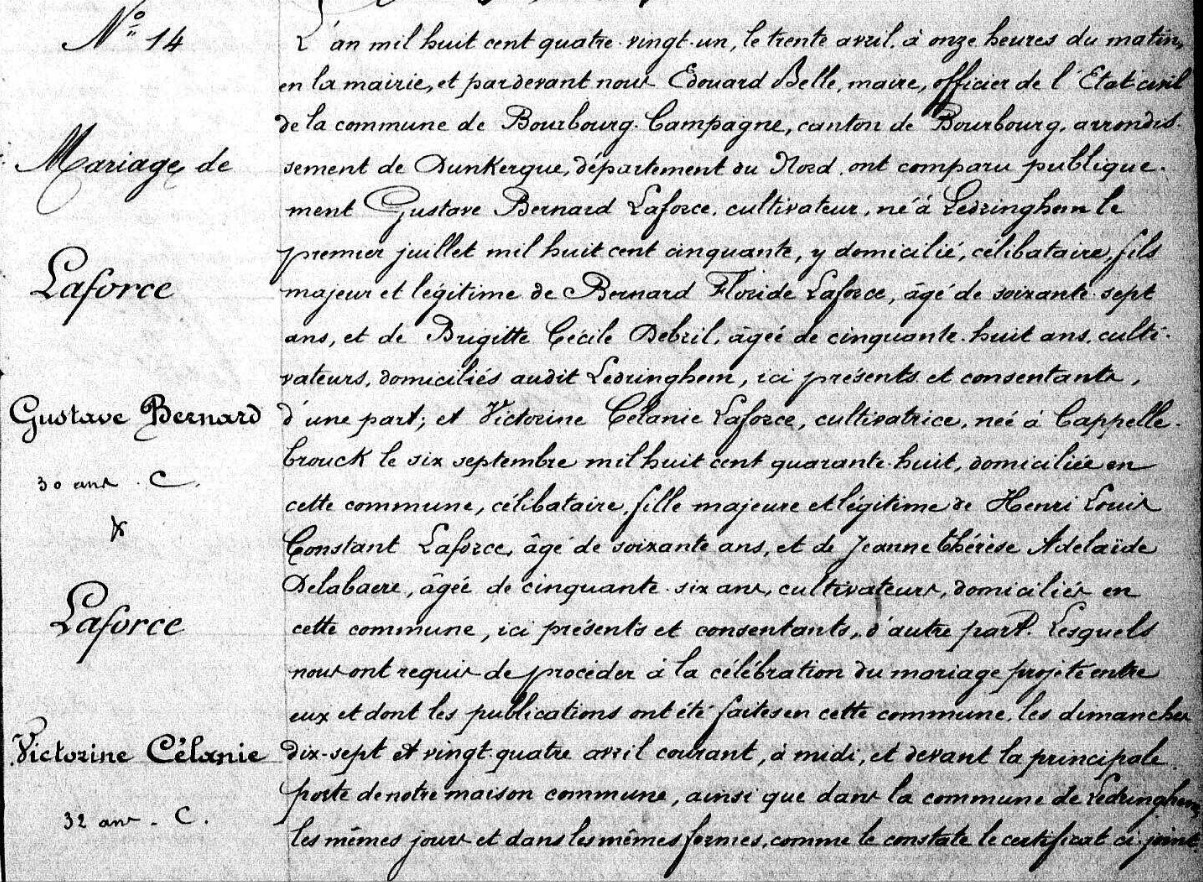 N° 14
Mariage de
Laforce
Gustave Bernard
30 ans . C.
&
Laforce
Victorine Célanie
32 ans - C.
L'an mil huit cent quatre-vingt-un, le trente avril, à onze heures du matin,
en la mairie, et pardevant nous Edouard Belle, maire, officier de l'Etat-civil
de la commune de Bourbourg-Campagne, canton de Bourbourg, arrondis-
sement de Dunkerque, département du Nord, ont comparu publique-
ment Gustave Bernard Laforce, cultivateur, né à Ledringhem le
premier juillet mil huit cent cinquante, y domicilié, célibataire, fils
majeur et légitime de Bernard Floride Laforce, âgé de soixante-sept
ans, et de Brigitte Cécile Debril, âgée de cinquante-huit ans, culti-
vateurs, domiciliés audit Ledringhem, ici présents et consentants,
d'une part; et Victorine Célanie Laforce, cultivatrice, née à Cappelle-
brouck le six septembre mil huit cent quarante-huit, domiciliée en
cette commune, célibataire, fille majeure et légitime de Henri Louis
Constant Laforce, âgé de soixante ans, et de Jeanne Thérèse Adelaïde
Delabaere, âgée de cinquante-six ans, cultivateurs, domiciliés en
cette commune, ici présents et consentants, d'autre part. Lesquels
nous ont requis de procéder à la célébration du mariage projeté entre
eux et dont les publications ont été faites en cette commune, les dimanches
dix-sept et vingt-quatre avril courant, à midi, et devant la principale
porte de notre maison commune, ainsi que dans la commune de Ledringhem
les mêmes jours et dans les mêmes formes, comme le constate le certificat ci-joint,